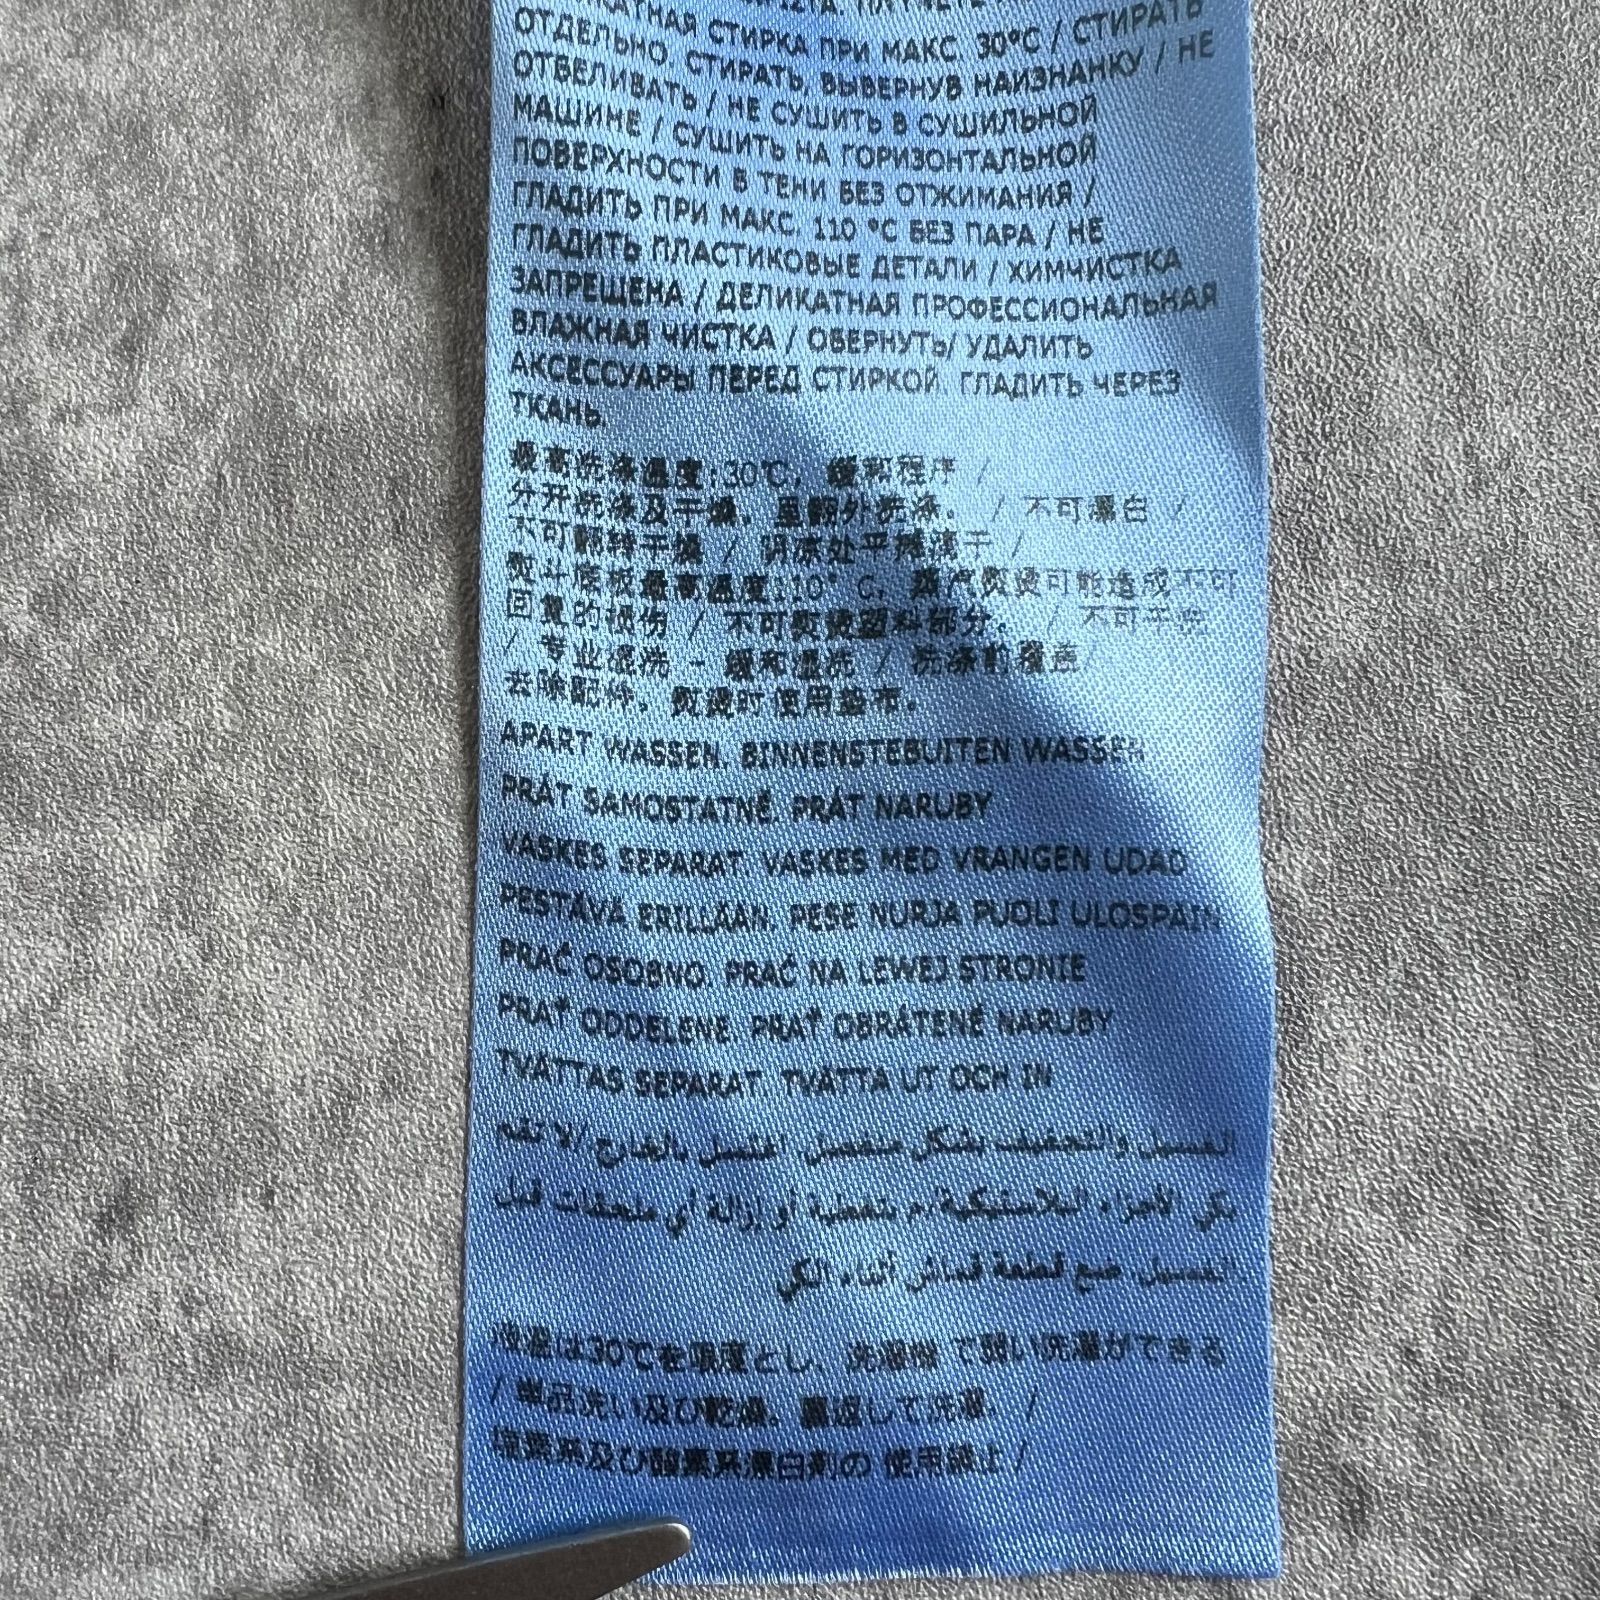 СТИРКА ПРИ МАКС. 30°C / СТИРАТЬ
ОТДЕЛЬНО. СТИРАТЬ, ВЫВЕРНУВ НАИЗНАНКУ / НЕ
ОТБЕЛИВАТЬ / НЕ СУШИТЬ В СУШИЛЬНОЙ
МАШИНЕ / СУШИТЬ НА ГОРИЗОНТАЛЬНОЙ
ПОВЕРХНОСТИ В ТЕНИ БЕЗ ОТЖИМАНИЯ /
ГЛАДИТЬ ПРИ МАКС. 110 °C БЕЗ ПАРА / НЕ
ГЛАДИТЬ ПЛАСТИКОВЫЕ ДЕТАЛИ / ХИМЧИСТКА
ЗАПРЕЩЕНА / ДЕЛИКАТНАЯ ПРОФЕССИОНАЛЬНАЯ
ВЛАЖНАЯ ЧИСТКА / ОБЕРНУТЬ/ УДАЛИТЬ
АКСЕССУАРЫ ПЕРЕД СТИРКОЙ. ГЛАДИТЬ ЧЕРЕЗ
ТКАНЬ.
最高洗涤温度:30℃, 缓和程序 /
分开洗涤及干燥. 里翻外洗涤. / 不可漂白 /
不可翻转干燥 / 阴凉处平摊滴干 /
熨斗底板最高温度110° C, 蒸汽熨烫可能造成不可
回复的损伤 / 不可熨烫塑料部分. / 不可干洗
/ 专业湿洗 - 缓和湿洗 / 洗涤前覆盖/
去除配件. 熨烫时使用垫布.
APART WASSEN. BINNENSTEBUITEN WASSEN
PRÁT SAMOSTATNĚ. PRÁT NARUBY
VASKES SEPARAT. VASKES MED VRANGEN UDAD
PESTÄVÄ ERILLÄÄN. PESE NURJA PUOLI ULOSPÄIN
PRAĆ OSOBNO. PRAĆ NA LEWEJ STRONIE
PRAŤ ODDELENE. PRAŤ OBRÁTENÉ NARUBY
TVÄTTAS SEPARAT. TVÄTTA UT OCH IN
الغسيل والتجفيف بشكل منفصل. اغسل بالخارج /لا تقم
بكي الأجزاء البلاستيكية /قم بتغطية أو إزالة أي ملحقات قبل
الغسيل. ضع قطعة قماش أثناء الكي
液温は30℃を限度とし、洗濯機 で弱い洗濯ができる
/ 単品洗い及び乾燥。裏返して洗濯. /
塩素系及び酸素系漂白剤の 使用禁止 /